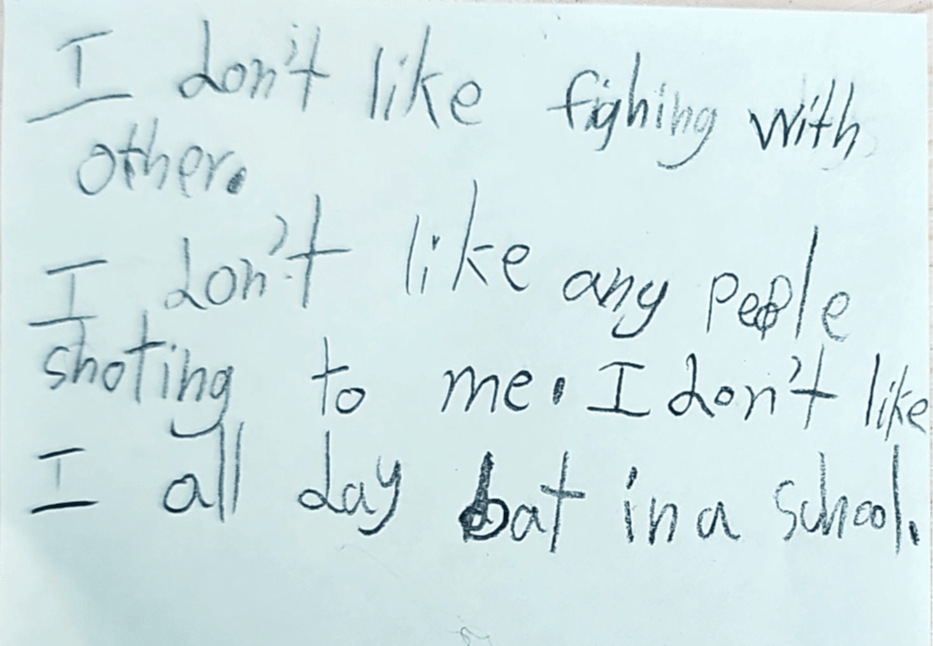 I don't like fighing with
other.
I don't like any people
shoting to me. I don't like
I all day bat in a school.